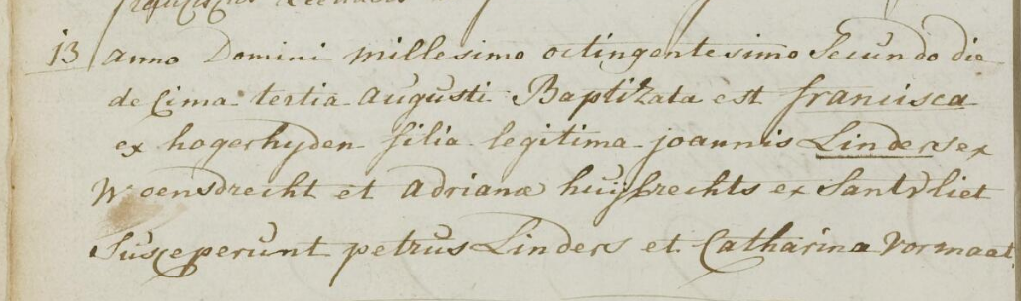 13 anno Domini millesimo octingentesimo Secundo die
decima tertia Augusti Baptizata est francisca
ex hogerhyden filia legitima joannis Linders ex
Woensdrecht et Adrianæ huijbrechts ex Santvliet
Susceperunt petrus Linders et Catharina Vormaat